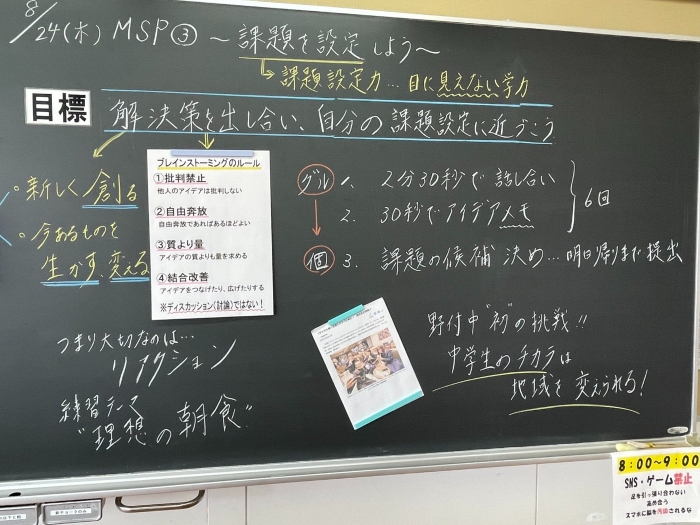 8/24(木) MSP③ ～課題を設定しよう～
↳課題設定力…目に見えない学力
目標 解決策を出し合い、自分の課題設定に近づこう
。新しく創る
。今あるものを
生かす、変える
ブレインストーミングのルール
①批判禁止
他人のアイデアは批判しない
②自由奔放
自由奔放であればあるほどよい
③質より量
アイデアの質よりも量を求める
④結合改善
アイデアをつなげたり、広げたりする
※ディスカッション(討論)ではない！
グル 1. 2分30秒で話し合い
2. 30秒でアイデアメモ
6回
個 3. 課題の候補決め…明日帰りまで提出
つまり大切なのは…
リアクション
練習テーマ
"理想の朝食"
野付中"初"の挑戦!!
中学生のチカラは
地域を変えられる!
8:00～9:00
SNS・ゲーム禁止
足を引っ張り合わない
高め合う
スマホに脳を汚染されるな